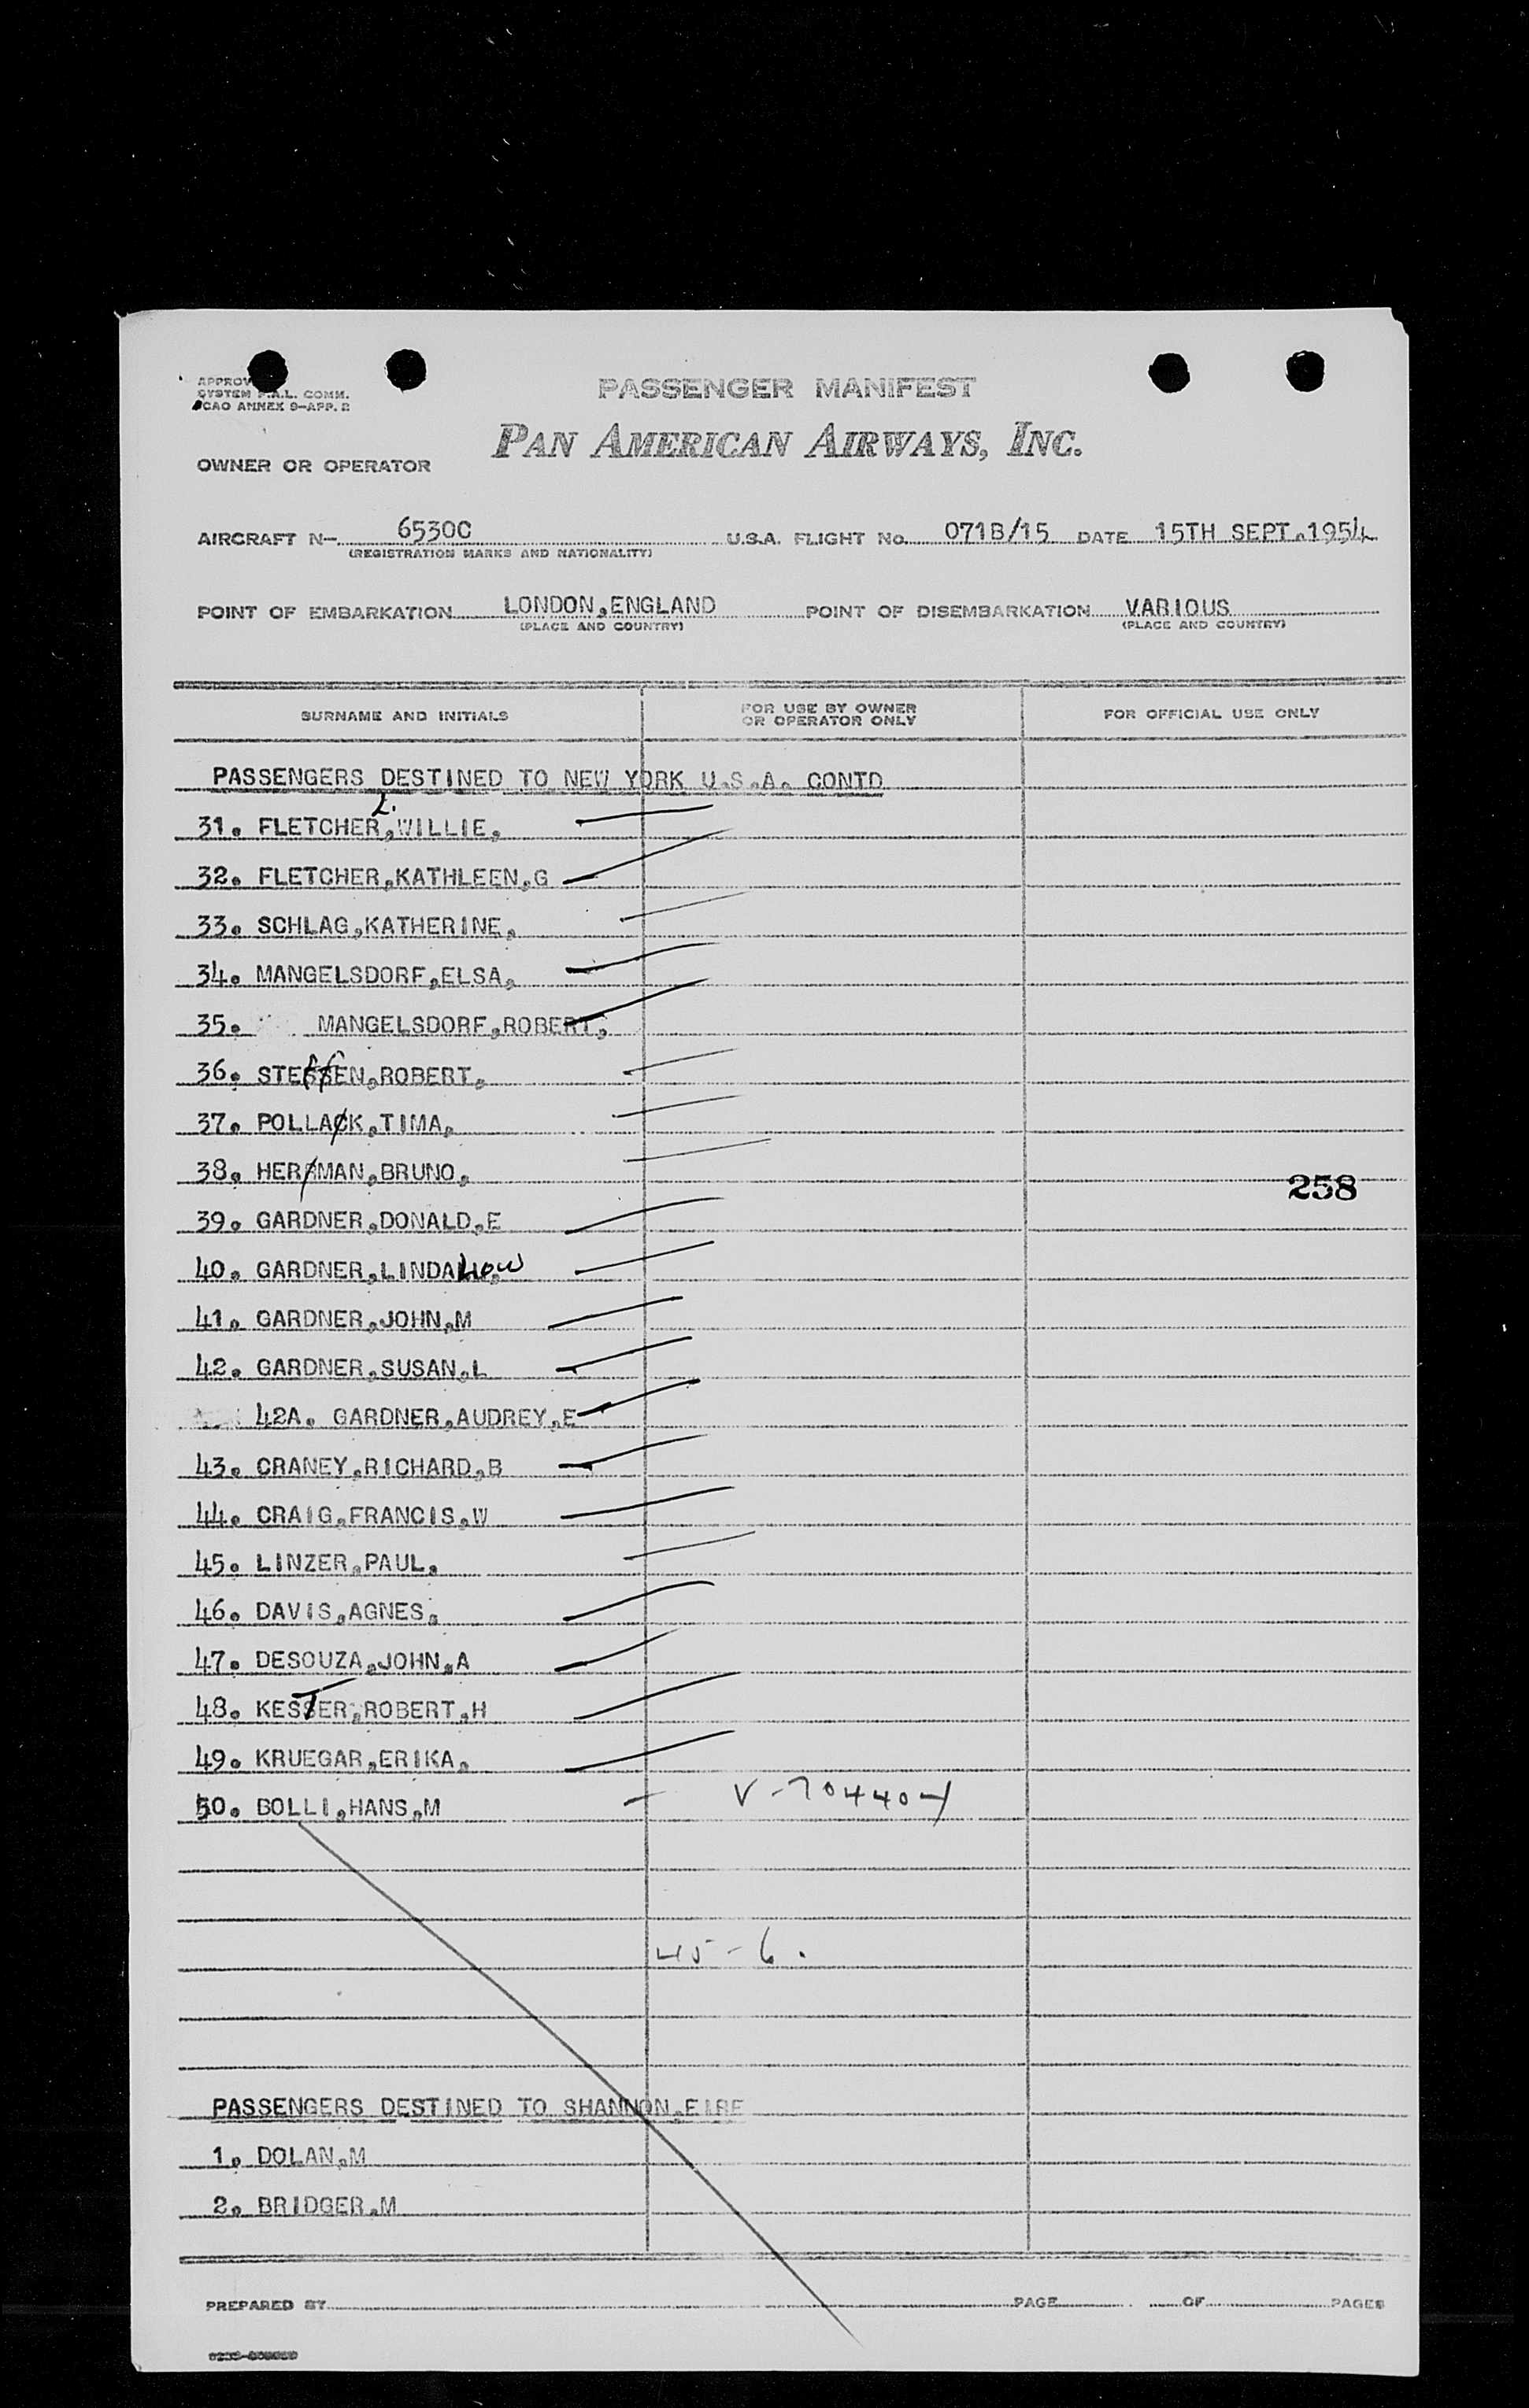 PASSENGER MANIFEST
SYSTEM F.A.L. COMM.
ICAO ANNEX 9-APP. 2
PAN AMERICAN AIRWAYS, INC.
OWNER OR OPERATOR
AIRCRAFT N- 6530C U.S.A. FLIGHT No. 071B/15 DATE 15TH SEPT.1954
(REGISTRATION MARKS AND NATIONALITY)
POINT OF EMBARKATION LONDON,ENGLAND POINT OF DISEMBARKATION VARIOUS
(PLACE AND COUNTRY) (PLACE AND COUNTRY)
SURNAME AND INITIALS FOR USE BY OWNER OR OPERATOR ONLY FOR OFFICIAL USE ONLY
PASSENGERS DESTINED TO NEW YORK U.S.A. CONTD
L.
31. FLETCHER,WILLIE,
32. FLETCHER,KATHLEEN,G
33. SCHLAG,KATHERINE,
34. MANGELSDORF,ELSA,
35. MANGELSDORF,ROBERT,
36. STEFFEN,ROBERT,
37. POLLACK,TIMA,
38. HERRMAN,BRUNO,
258
39. GARDNER,DONALD,E
40. GARDNER,LINDA Low
41. GARDNER,JOHN,M
42. GARDNER,SUSAN,L
42A. GARDNER,AUDREY,E
43. CRANEY,RICHARD,B
44. CRAIG,FRANCIS,W
45. LINZER,PAUL,
46. DAVIS,AGNES,
47. DESOUZA,JOHN,A
48. KESTER,ROBERT,H
49. KRUEGAR,ERIKA,
50. BOLLI,HANS,M V-704404
45-6.
PASSENGERS DESTINED TO SHANNON,EIRE
1. DOLAN,M
2. BRIDGER,M
PREPARED BY PAGE OF PAGES